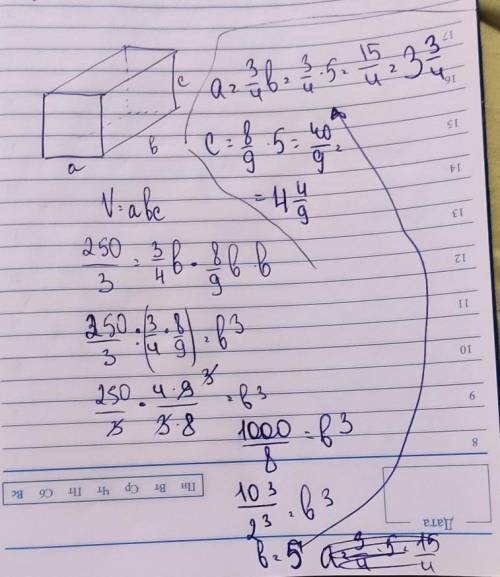 a = 3/4 b = 3/4 · 5 = 15/4 = 3 3/4
c = 8/9 · 5 = 40/9 =
= 4 4/9
a
b
c
V = abc
250/3 = 3/4 b · 8/9 b · b
250/3 : (3/4 · 8/9) = b³
250/3 · 4·9 3/3·8 = b³
1000/8 = b³
10³/2³ = b³
b = 5
a = 3/4 · 5 = 15/4
17
16
15
14
13
12
11
10
9
8
Пн Вт Ср Чт Пт Сб Вс
Дата